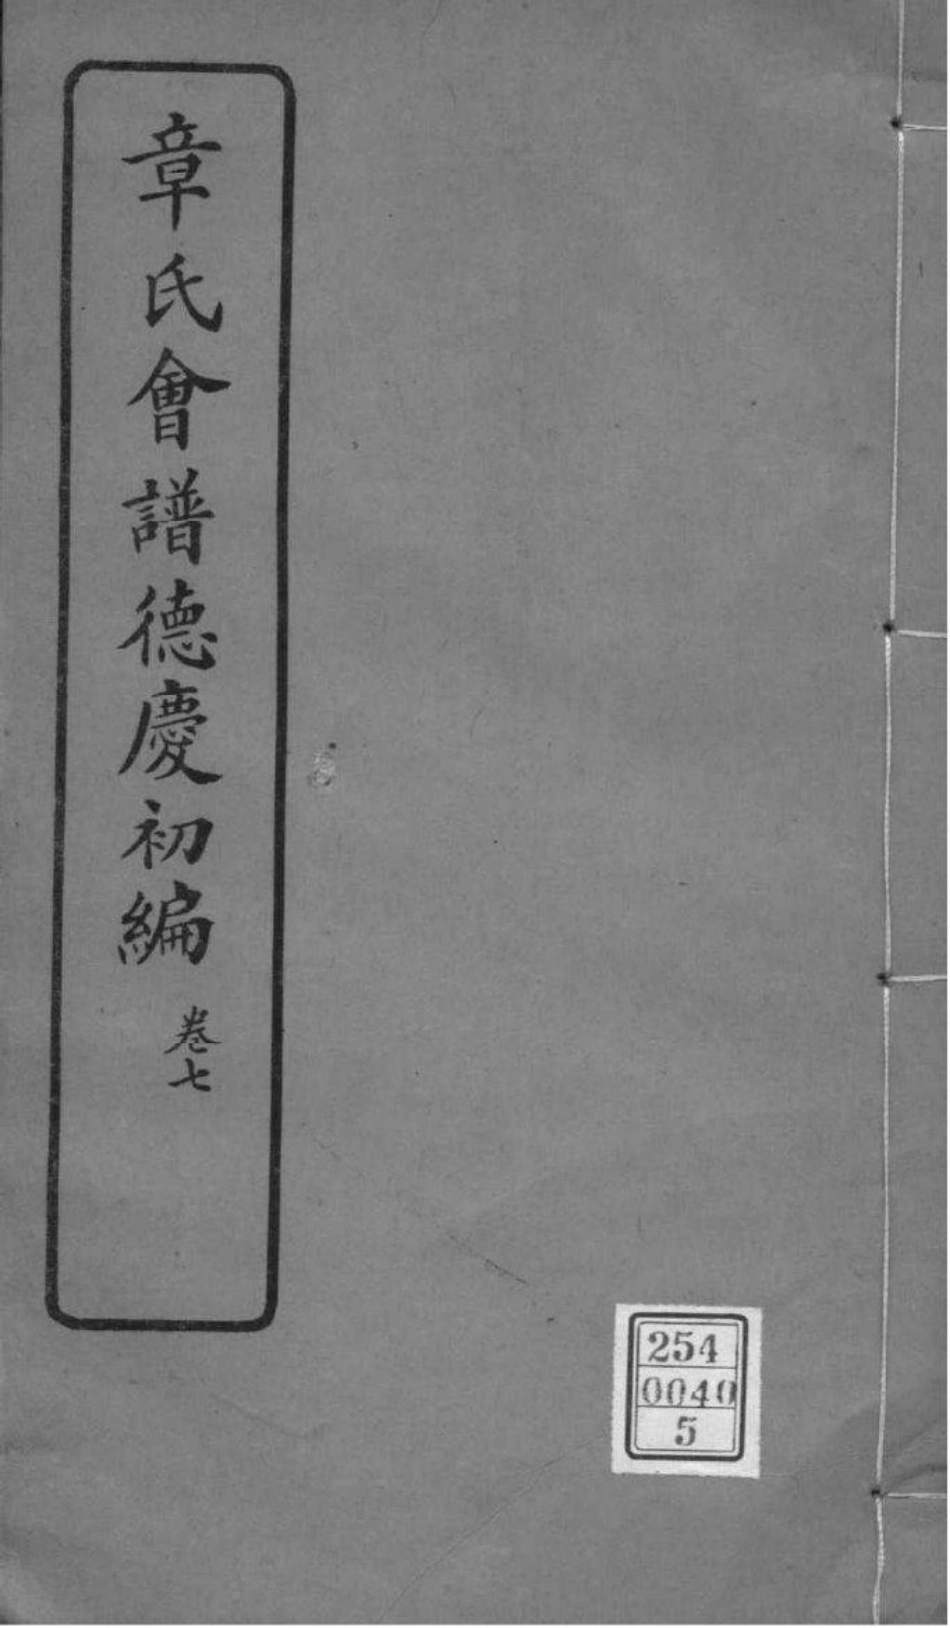 章氏會譜德慶初編
卷七
254
0040
5